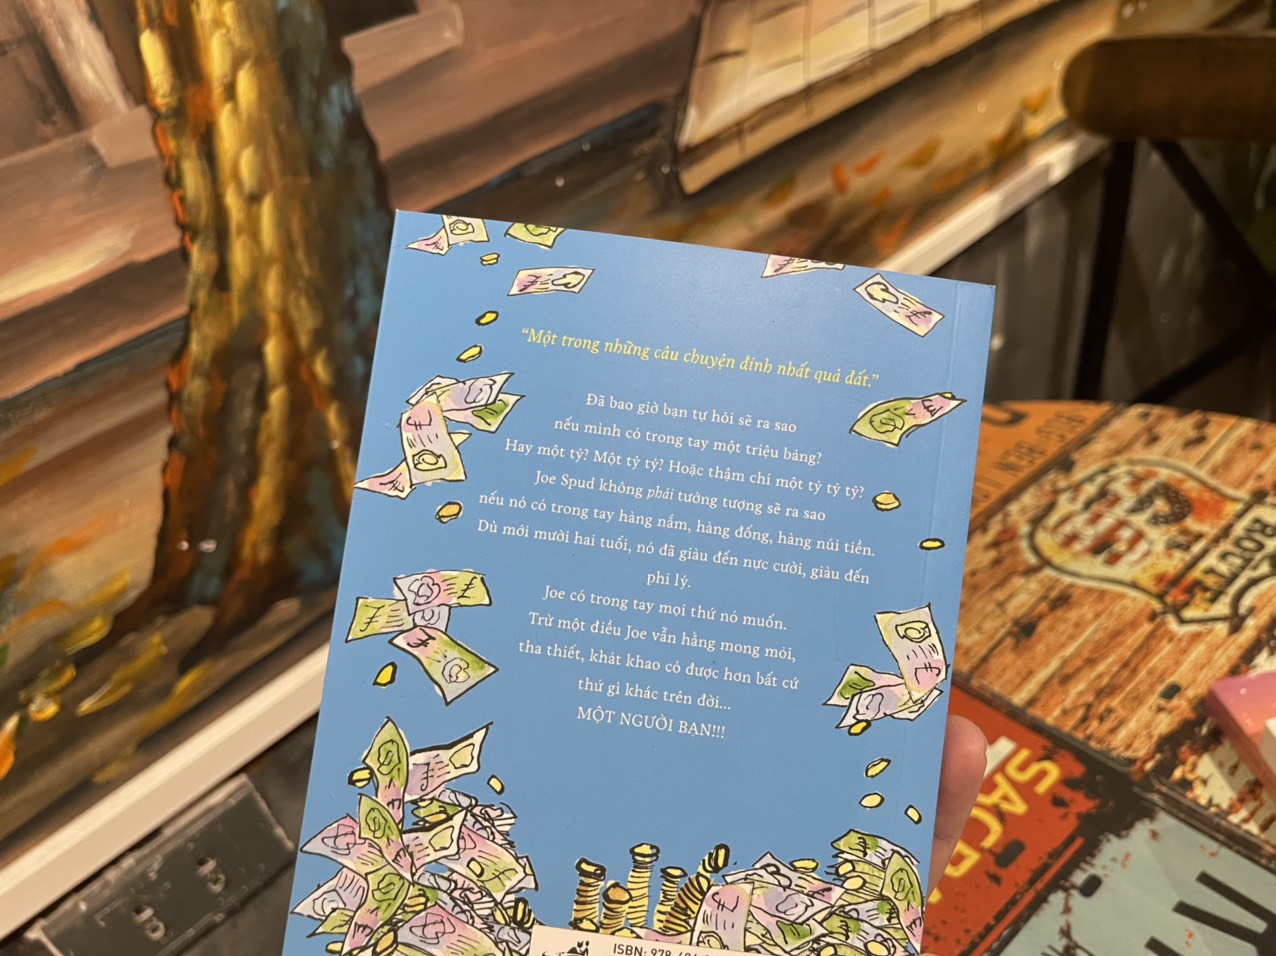 “Một trong những câu chuyện đỉnh nhất quả đất.”
Đã bao giờ bạn tự hỏi sẽ ra sao
nếu mình có trong tay một triệu bảng?
Hay một tỷ? Một tỷ tỷ? Hoặc thậm chí một tỷ tỷ tỷ?
Joe Spud không phải tưởng tượng sẽ ra sao
nếu nó có trong tay hàng nắm, hàng đống, hàng núi tiền.
Dù mới mười hai tuổi, nó đã giàu đến nực cười, giàu đến
phi lý.
Joe có trong tay mọi thứ nó muốn.
Trừ một điều Joe vẫn hằng mong mỏi,
tha thiết, khát khao có được hơn bất cứ
thứ gì khác trên đời...
MỘT NGƯỜI BẠN!!!
ISBN: 978
ROUTE